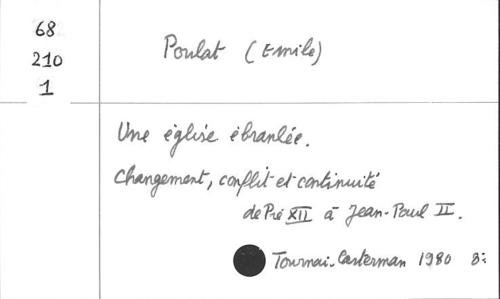 68
210
1
Poulat (Emile)
Une église ébranlée.
Changement, conflit et continuité
de Pie XII à Jean-Paul II.
Tournai-Casterman 1980 8°